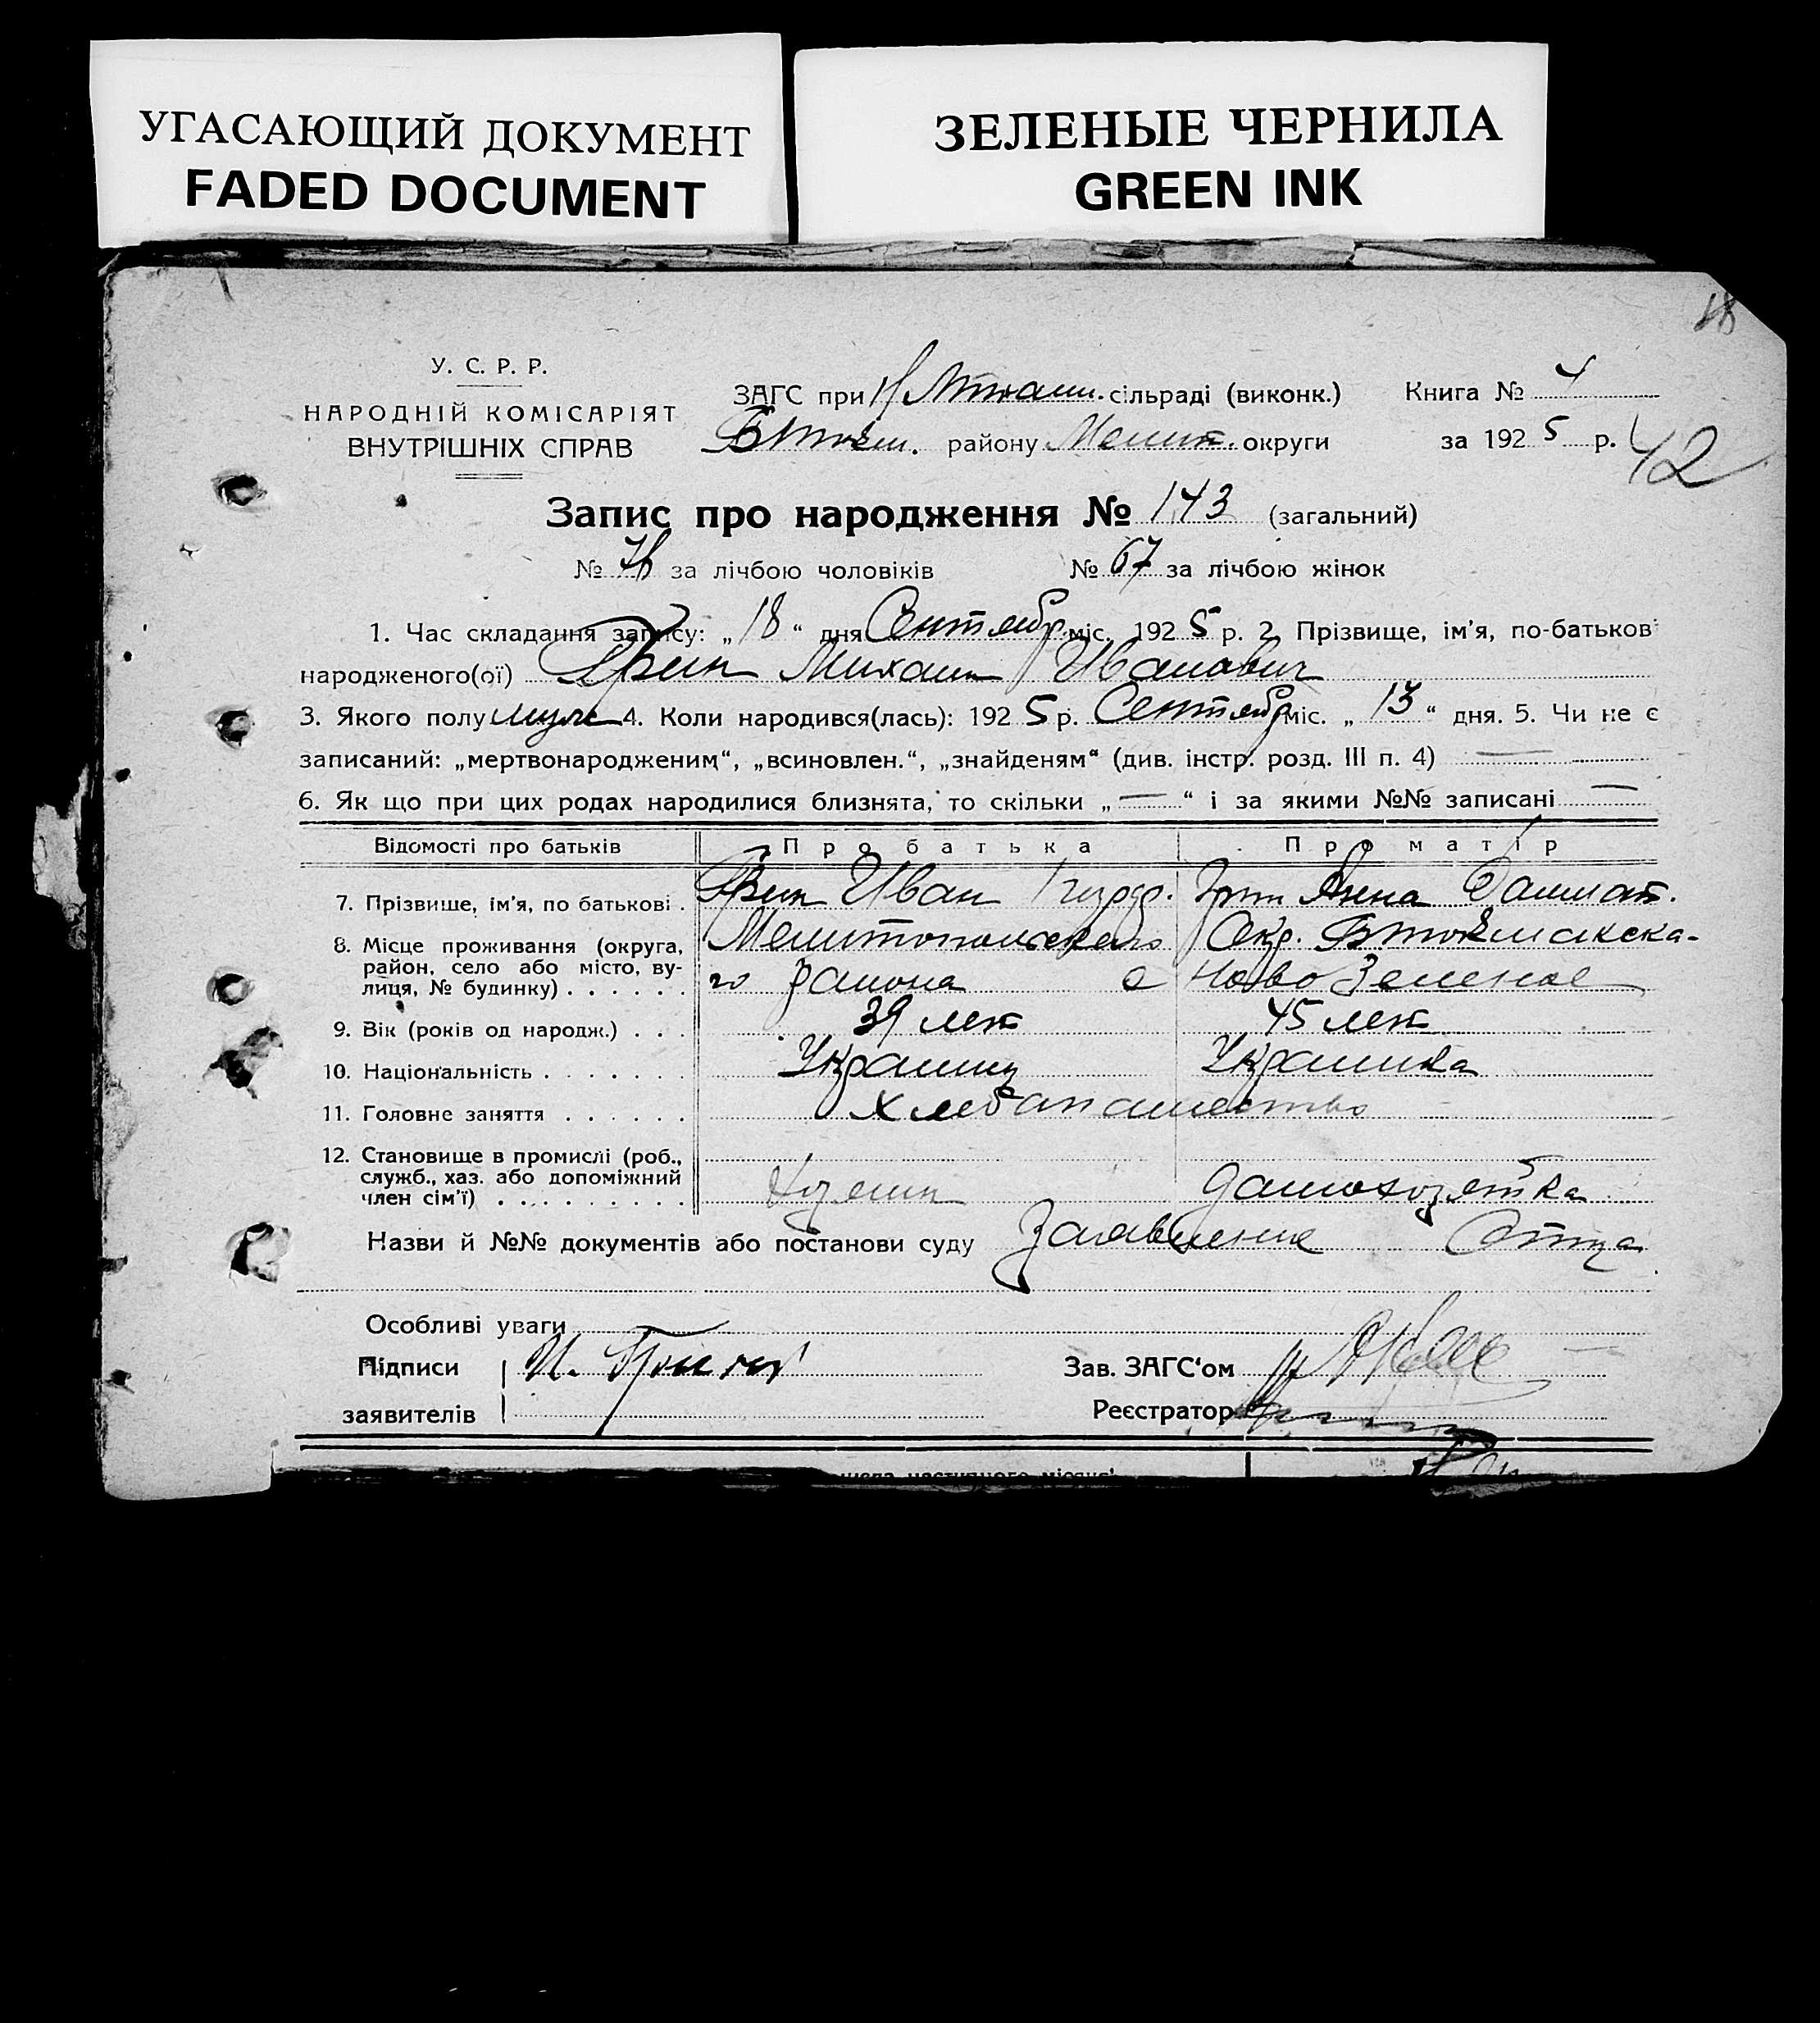 УГАСАЮЩИЙ ДОКУМЕНТ
FADED DOCUMENT
ЗЕЛЕНЫЕ ЧЕРНИЛА
GREEN INK
18
У. С. Р. Р.
НАРОДНІЙ КОМІСАРІЯТ
ВНУТРІШНІХ СПРАВ
ЗАГС при сільраді (виконк.) Книга № 4
БТокм. району Мелит. округи за 1925 р.
42
Запис про народження № 143 (загальний)
№ 76 за лічбою чоловіків № 67 за лічбою жінок
1. Час складання запису: „18“ дня Сентябр міс. 1925 р. 2. Прізвище, ім'я, по-батьков
народженого(ої) Михаил Иванович
3. Якого полу муж 4. Коли народився(лась): 1925 р. Сентябр міс. „13“ дня. 5. Чи не є
записаний: „мертвонародженим“, „всиновлен.“, „знайденям“ (див. інстр. розд. III п. 4) —
6. Як що при цих родах народилися близнята, то скільки „—“ і за якими №№ записані —
Відомості про батьків Про батька Про матір
7. Прізвище, ім'я, по батькові . Иван Анна
8. Місце проживання (округа, Мелитопольского Окр. БТокмакска-
район, село або місто, ву- го района с Ново Зеленое
лиця, № будинку) . . . . . .
9. Вік (років од народж.) . . . 39 лет 45 лет
10. Національність . . . . . . . Украинц Украинка
11. Головне заняття . . . . . . Хлебапашество
12. Становище в промислі (роб.,
служб., хаз. або допоміжний Хозяин дамохозяйка
член сім'ї) . . . . . . . . .
Назви й №№ документів або постанови суду Заявление Отца
Особливі уваги
Підписи И.
Зав. ЗАГС'ом
заявителів
Реєстратор